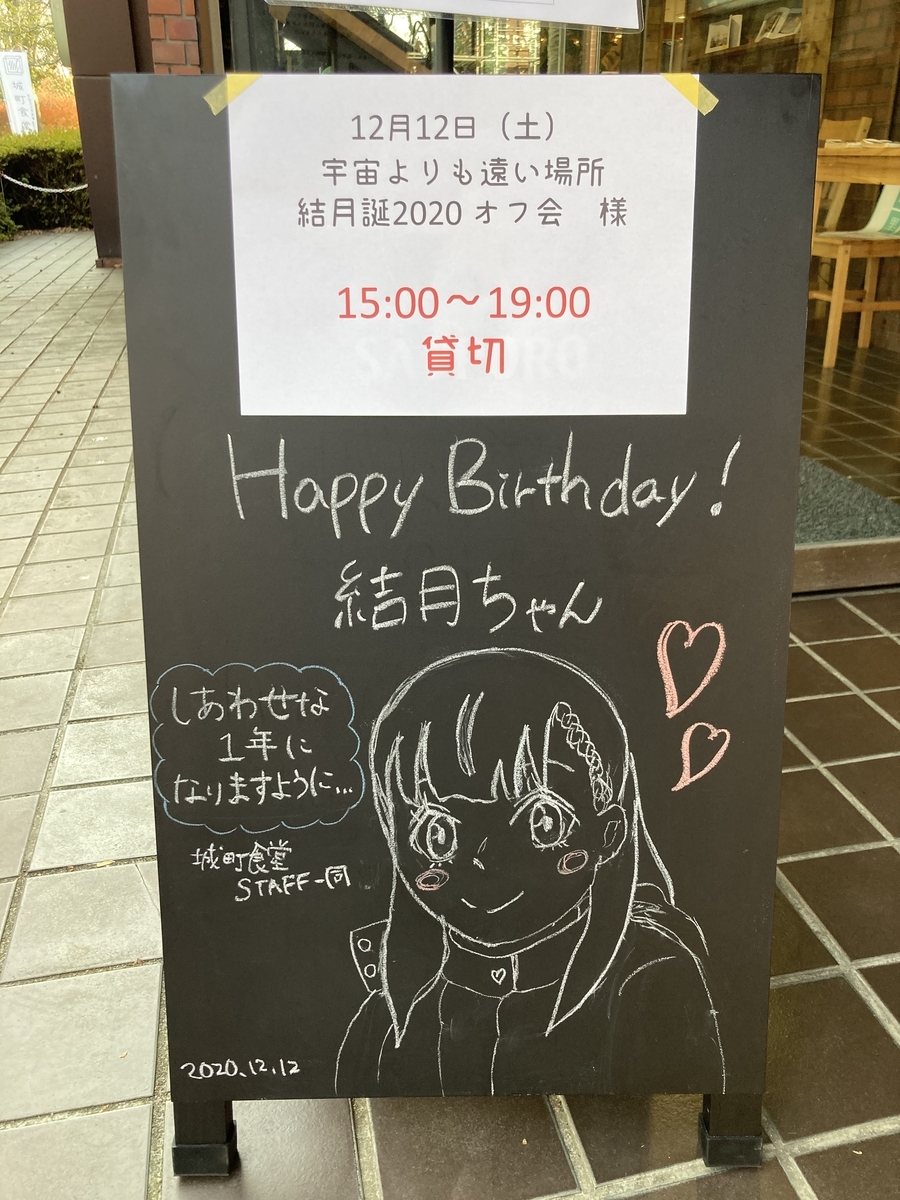 12月12日（土）
宇宙よりも遠い場所
結月誕2020 オフ会　様
15:00～19:00
貸切
Happy Birthday!
結月ちゃん
しあわせな
1年に
なりますように...
城町食堂
STAFF一同
2020.12.12
城町食堂